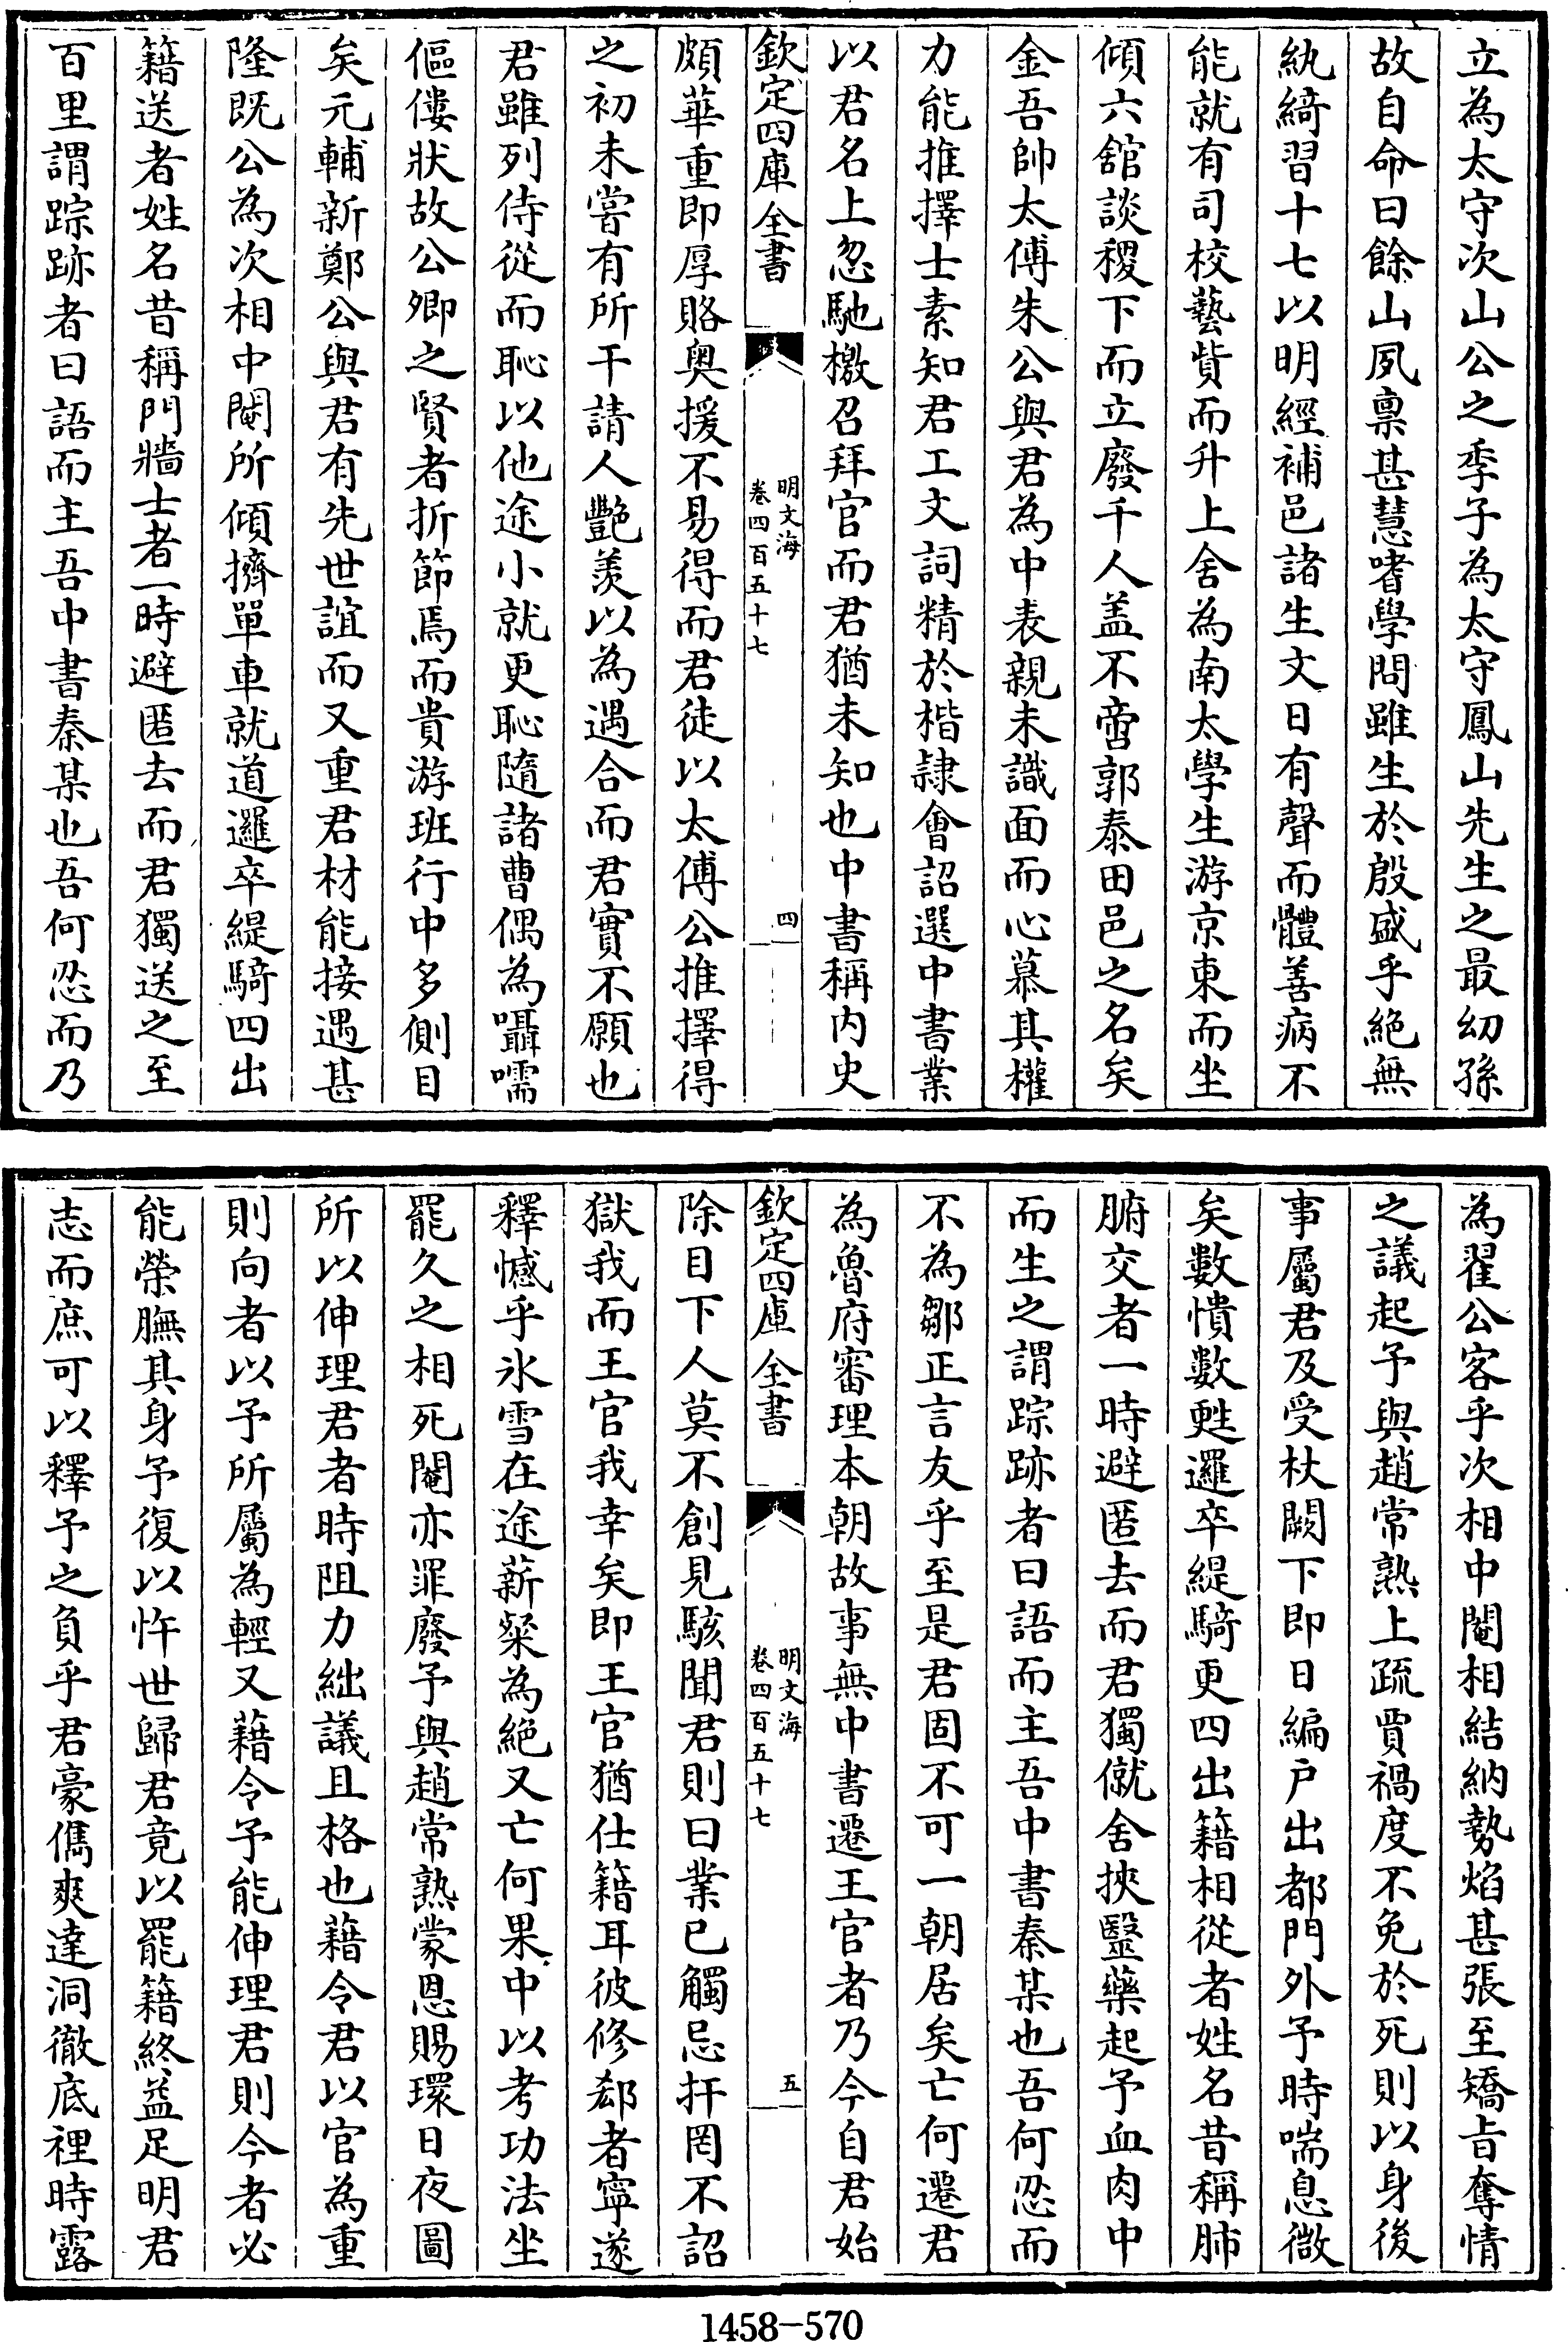 立為太守次山公之季子為太守鳳山先生之最幼孫
故自命曰餘山夙禀甚慧嗜學問雖生於殷盛乎絶無
紈綺習十七以明經補邑諸生文日有聲而體善病不
能就有司校藝貲而升上舍為南太學生游京東而坐
傾六舘談稷下而立廢千人盖不啻郭泰田邑之名矣
金吾帥太傅朱公與君為中表親未識面而心慕其權
力能推擇士素知君工文詞精於楷隷會詔選中書業
以君名上忽馳檄召拜官而君猶未知也中書稱内史
欽定四庫全書
明文海
卷四百五十七
四
頗華重即厚賂奥援不易得而君徒以太傅公推擇得
之初未嘗有所干請人艷羨以為遇合而君實不願也
君雖列侍從而恥以他途小就更恥隨諸曹偶為囁嚅
傴僂狀故公卿之賢者折節焉而貴游班行中多側目
矣元輔新鄭公與君有先世誼而又重君材能接遇甚
隆既公為次相中閹所傾擠單車就道邏卒緹騎四出
籍送者姓名昔稱門牆士者一時避匿去而君獨送之至
百里謂踪跡者曰語而主吾中書秦某也吾何忍而乃
為翟公客乎次相中閹相結納勢焰甚張至矯旨奪情
之議起予與趙常熟上疏賈禍度不免於死則以身後
事屬君及受杖闕下即日編戶出都門外予時喘息微
矣數憒數甦邏卒緹騎更四出籍相從者姓名昔稱肺
腑交者一時避匿去而君獨僦舍挾毉藥起予血肉中
而生之謂踪跡者曰語而主吾中書秦某也吾何忍而
不為鄒正言友乎至是君固不可一朝居矣亡何遷君
為魯府審理本朝故事無中書遷王官者乃今自君始
欽定四庫全書
明文海
卷四百五十七
五
除目下人莫不創見駭聞君則曰業已觸忌扞罔不詔
獄我而王官我幸矣即王官猶仕籍耳彼修郄者寧遂
釋憾乎氷雪在途薪粲為絶又亡何果中以考功法坐
罷久之相死閹亦罪廢予與趙常熟蒙恩賜環日夜圖
所以伸理君者時阻力絀議且格也藉令君以官為重
則向者以予所屬為輕又藉令予能伸理君則今者必
能榮膴其身予復以忤世歸君竟以罷籍終益足明君
志而庶可以釋予之負乎君豪儁爽達洞徹底裡時露
1458-570